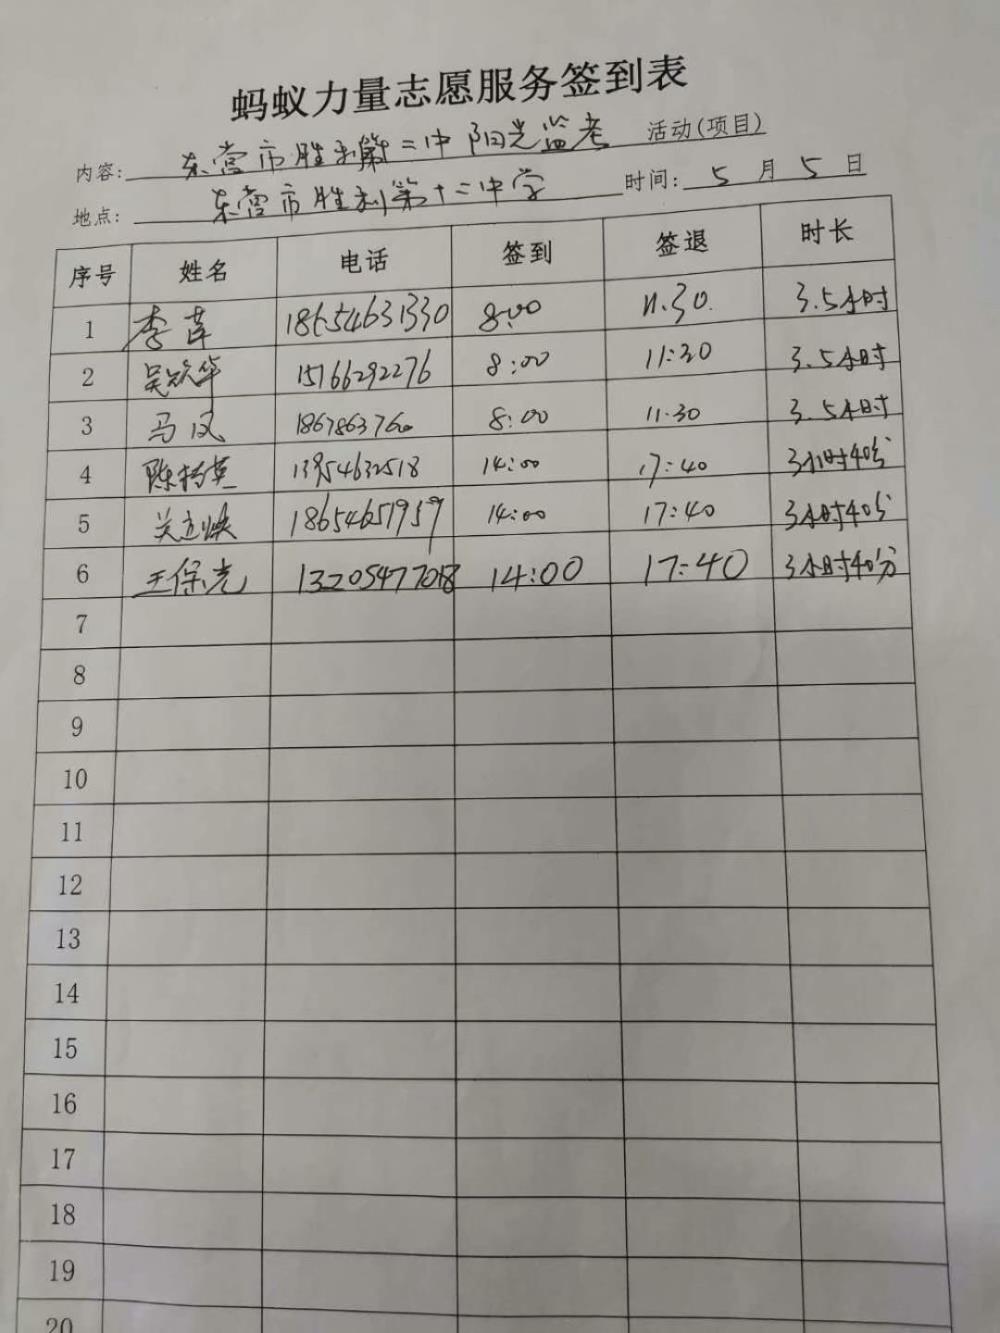 蚂蚁力量志愿服务签到表
内容: 东营市胜利第二中 阳光监考 活动(项目)
地点: 东营市胜利第十二中学 时间: 5 月 5 日
序号 姓名 电话 签到 签退 时长
1 李莲 18654631330 8:00 11.30. 3.5小时
2 吴欣华 15166292276 8:00 11:30 3.5小时
3 马风 8:00 11.30 3.5小时
4 陈杨英 13954632518 14:00 17:40 3小时40分
5 18654651959 14:00 17:40 3小时40分
6 王保光 13205477018 14:00 17:40 3小时40分
7
8
9
10
11
12
13
14
15
16
17
18
19
20